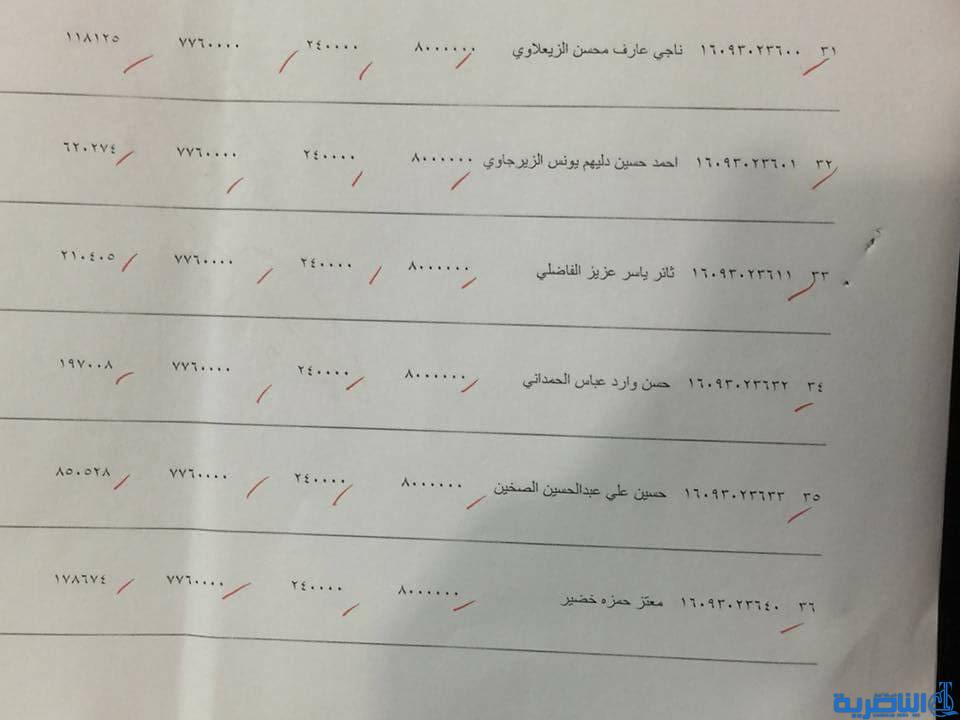 ٣١ ١٦٠٩٣٠٢٣٦٠٠ ناجي عارف محسن الزيعلاوي ٨٠٠٠٠٠٠ ٢٤٠٠٠٠ ٧٧٦٠٠٠٠ ١١٨١٢٥
٣٢ ١٦٠٩٣٠٢٣٦٠١ احمد حسين دليهم يونس الزيرجاوي ٨٠٠٠٠٠٠ ٢٤٠٠٠٠ ٧٧٦٠٠٠٠ ٦٢٠٢٧٤
٣٣ ١٦٠٩٣٠٢٣٦١١ ثائر ياسر عزيز الفاضلي ٨٠٠٠٠٠٠ ٢٤٠٠٠٠ ٧٧٦٠٠٠٠ ٢١٠٤٠٥
٣٤ ١٦٠٩٣٠٢٣٦٣٢ حسن وارد عباس الحمداني ٨٠٠٠٠٠٠ ٢٤٠٠٠٠ ٧٧٦٠٠٠٠ ١٩٧٠٠٨
٣٥ ١٦٠٩٣٠٢٣٦٣٣ حسين علي عبدالحسين الصخين ٨٠٠٠٠٠٠ ٢٤٠٠٠٠ ٧٧٦٠٠٠٠ ٨٥٠٥٢٨
٣٦ ١٦٠٩٣٠٢٣٦٤٠ معتز حمزه خضير ٨٠٠٠٠٠٠ ٢٤٠٠٠٠ ٧٧٦٠٠٠٠ ١٧٨٦٧٤
الناصرية